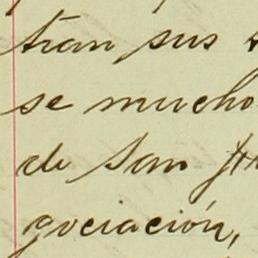 tran sus
se mucho
de San
gociación,